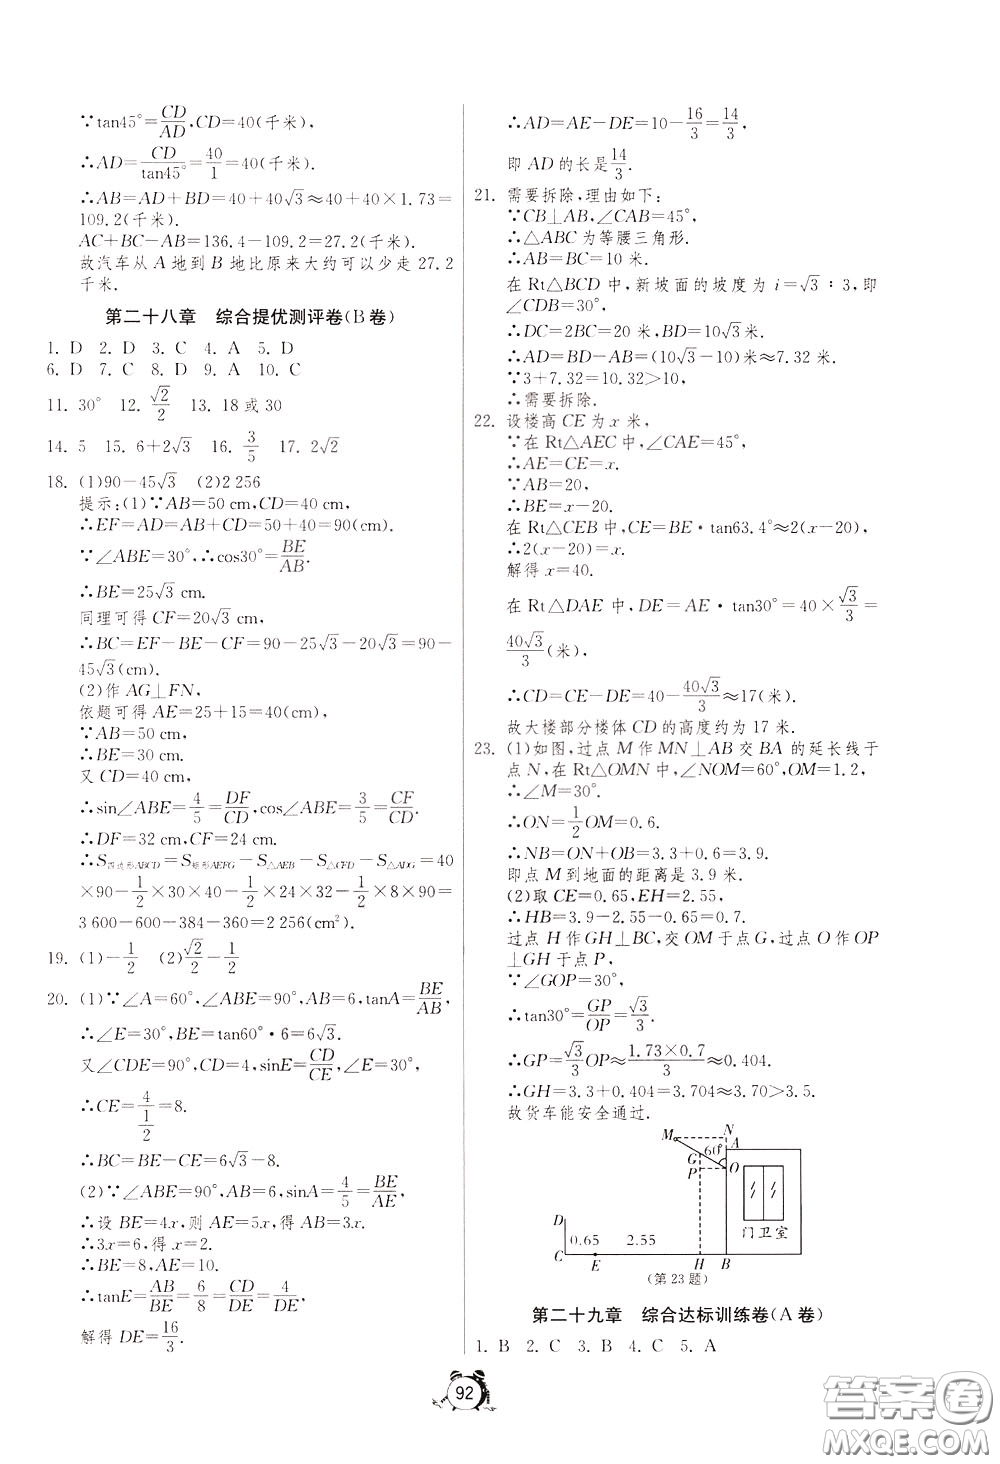 ∵tan45°=CD/AD,CD=40(千米),
∴AD=CD/tan45°=40/1=40(千米).
∴AB=AD+BD=40+40√3≈40+40×1.73=
109.2(千米).
AC+BC-AB=136.4-109.2=27.2(千米).
故汽车从A地到B地比原来大约可以少走27.2
千米.
第二十八章 综合提优测评卷(B卷)
1. D 2. D 3. C 4. A 5. D
6. D 7. C 8. D 9. A 10. C
11. 30° 12. √2/2 13. 18或30
14. 5 15. 6+2√3 16. 3/5 17. 2√2
18. (1)90-45√3 (2)2 256
提示:(1)∵AB=50 cm,CD=40 cm,
∴EF=AD=AB+CD=50+40=90(cm).
∵∠ABE=30°,∴cos30°=BE/AB.
∴BE=25√3 cm.
同理可得CF=20√3 cm,
∴BC=EF-BE-CF=90-25√3-20√3=90-
45√3(cm).
(2)作AG⊥FN,
依题可得AE=25+15=40(cm),
∵AB=50 cm,
∴BE=30 cm.
又CD=40 cm,
∴sin∠ABE=4/5=DF/CD,cos∠ABE=3/5=CF/CD.
∴DF=32 cm,CF=24 cm.
∴S四边形ABCD=S矩形AEFG-S△AEB-S△CFD-S△ADG=40
×90-1/2×30×40-1/2×24×32-1/2×8×90=
3 600-600-384-360=2 256(cm²).
19. (1)-1/2 (2)√2/2-1/2
20. (1)∵∠A=60°,∠ABE=90°,AB=6,tanA=BE/AB,
∴∠E=30°,BE=tan60°·6=6√3.
又∠CDE=90°,CD=4,sinE=CD/CE,∠E=30°,
∴CE=4/(1/2)=8.
∴BC=BE-CE=6√3-8.
(2)∵∠ABE=90°,AB=6,sinA=4/5=BE/AE,
∴设BE=4x,则AE=5x,得AB=3x.
∴3x=6,得x=2.
∴BE=8,AE=10.
∴tanE=AB/BE=6/8=CD/DE=4/DE,
解得DE=16/3.
∴AD=AE-DE=10-16/3=14/3,
即AD的长是14/3.
21. 需要拆除,理由如下:
∵CB⊥AB,∠CAB=45°,
∴△ABC为等腰三角形.
∴AB=BC=10米.
在Rt△BCD中,新坡面的坡度为i=√3∶3,即
∠CDB=30°,
∴DC=2BC=20米,BD=10√3米.
∴AD=BD-AB=(10√3-10)米≈7.32米.
∵3+7.32=10.32>10,
∴需要拆除.
22. 设楼高CE为x米,
∵在Rt△AEC中,∠CAE=45°,
∴AE=CE=x.
∵AB=20,
∴BE=x-20.
在Rt△CEB中,CE=BE·tan63.4°≈2(x-20),
∴2(x-20)=x.
解得x=40.
在Rt△DAE中,DE=AE·tan30°=40×√3/3=
40√3/3(米),
∴CD=CE-DE=40-40√3/3≈17(米).
故大楼部分楼体CD的高度约为17米.
23. (1)如图,过点M作MN⊥AB交BA的延长线于
点N,在Rt△OMN中,∠NOM=60°,OM=1.2,
∴∠M=30°.
∴ON=1/2OM=0.6.
∴NB=ON+OB=3.3+0.6=3.9.
即点M到地面的距离是3.9米.
(2)取CE=0.65,EH=2.55.
∴HB=3.9-2.55-0.65=0.7.
过点H作GH⊥BC,交OM于点G,过点O作OP
⊥GH于点P,
∵∠GOP=30°,
∴tan30°=GP/OP=√3/3.
∴GP=√3/3OP≈1.73×0.7/3≈0.404.
∴GH=3.3+0.404=3.704≈3.70>3.5.
故货车能安全通过.
M N A
G 60° P O
D
0.65 2.55 门卫室
C E H B
(第23题)
第二十九章 综合达标训练卷(A卷)
1. B 2. C 3. B 4. C 5. A
92
答案卷
MXQE.COM